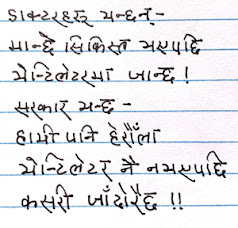 डाक्टरहरू भन्छन्-
मान्छे सिकिस्त भएपछि
भेन्टिलेटरमा जान्छ !
सरकार भन्छ -
हामी पनि हेरौंला
भेन्टिलेटर नै नभएपछि
कसरी जाँदोरैछ !!